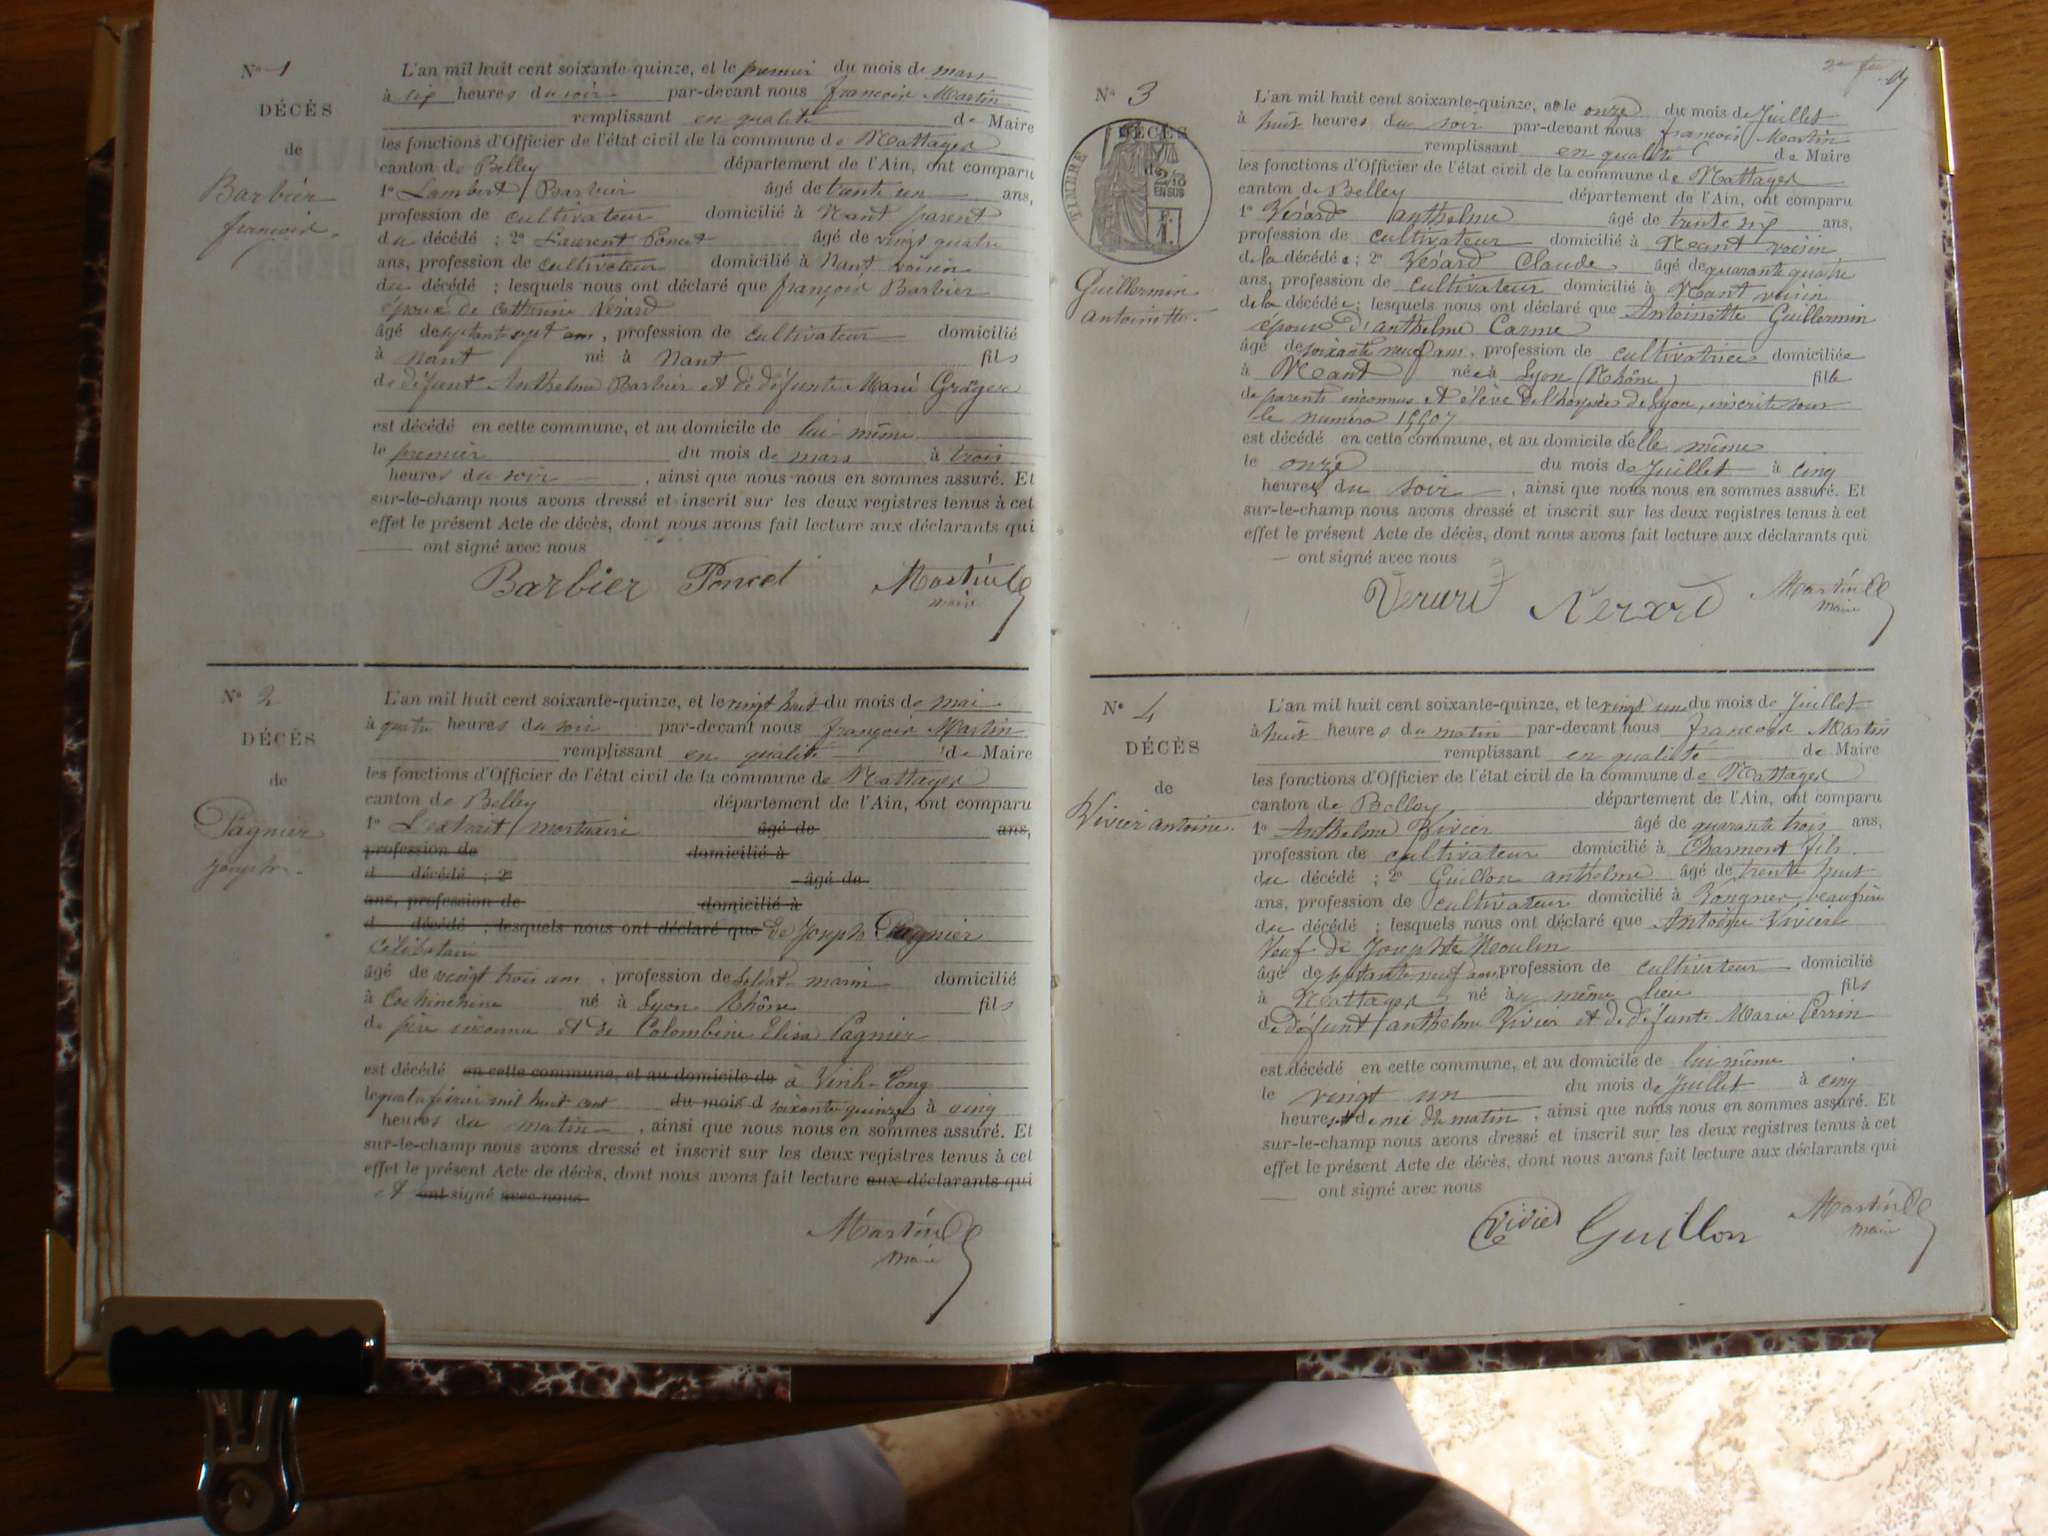 N° 1
DÉCÈS
de
Barbier
françois.
L'an mil huit cent soixante-quinze, et le premier du mois de mars
à six heures du soir par-devant nous françois Martin
remplissant en qualité de Maire
les fonctions d'Officier de l'état civil de la commune de Nattages
canton de Belley département de l'Ain, ont comparu
1° Lambert Barbier âgé de trente un ans,
profession de cultivateur domicilié à Nant parent
du décédé ; 2° Laurent Poncet âgé de vingt quatre
ans, profession de cultivateur domicilié à Nant voisin
du décédé ; lesquels nous ont déclaré que françois Barbier
époux de Catherine Vérard
âgé de septante sept ans, profession de cultivateur domicilié
à Nant né à Nant fils
de défunt Anthelme Barbier et de défunte Marie
est décédé en cette commune, et au domicile de lui même
le premier du mois de mars à trois
heures du soir, ainsi que nous nous en sommes assuré. Et
sur-le-champ nous avons dressé et inscrit sur les deux registres tenus à cet
effet le présent Acte de décès, dont nous avons fait lecture aux déclarants qui
ont signé avec nous
Barbier Poncet Martin
maire
N° 2
DÉCÈS
de
Pagnier
joseph.
L'an mil huit cent soixante-quinze, et le vingt huit du mois de mai
à quatre heures du soir par-devant nous françois Martin
remplissant en qualité de Maire
les fonctions d'Officier de l'état civil de la commune de Nattages
canton de Belley département de l'Ain, ont comparu
1° L'extrait mortuaire âgé de ans,
profession de domicilié à
d décédé ; 2° âgé de
ans, profession de domicilié à
d décédé ; lesquels nous ont déclaré que de Joseph Pagnier
Célibataire
âgé de vingt trois ans, profession de soldat marin domicilié
à Cochinchine né à Lyon Rhône fils
de père inconnu et de Colombine Elisa Pagnier
est décédé en cette commune, et au domicile de à Vinh-Long
le quatre février mil huit cent du mois d soixante quinze à cinq
heures du matin, ainsi que nous nous en sommes assuré. Et
sur-le-champ nous avons dressé et inscrit sur les deux registres tenus à cet
effet le présent Acte de décès, dont nous avons fait lecture aux déclarants qui
et ont signé avec nous
Martin
maire
N° 3
DÉCÈS
TIMBRE
2/10
EN SUS
Guillermin
antoinette.
L'an mil huit cent soixante-quinze, et le onze du mois de Juillet
à huit heures du soir par-devant nous françois Martin
remplissant en qualité de Maire
les fonctions d'Officier de l'état civil de la commune de Nattages
canton de Belley département de l'Ain, ont comparu
1° Vérard anthelme âgé de trente six ans,
profession de cultivateur domicilié à Nant voisin
de la décédée ; 2° Vérard Claude âgé de quarante quatre
ans, profession de cultivateur domicilié à Nant voisin
de la décédée ; lesquels nous ont déclaré que Antoinette Guillermin
épouse d'anthelme Carme
âgé de soixante neuf ans, profession de cultivatrice domiciliée
à Nant née à Lyon (Rhône) fille
de parents inconnus et élève de l'hospice de Lyon, inscrite sous
le numéro
est décédé en cette commune, et au domicile d'elle même
le onze du mois de Juillet à cinq
heures du soir, ainsi que nous nous en sommes assuré. Et
sur-le-champ nous avons dressé et inscrit sur les deux registres tenus à cet
effet le présent Acte de décès, dont nous avons fait lecture aux déclarants qui
ont signé avec nous
Verard Verard Martin
maire
N° 4
DÉCÈS
de
Vivier antoine.
L'an mil huit cent soixante-quinze, et le vingt un du mois de Juillet
à huit heures du matin par-devant nous françois Martin
remplissant en qualité de Maire
les fonctions d'Officier de l'état civil de la commune de Nattages
canton de Belley département de l'Ain, ont comparu
1° Anthelme Vivier âgé de quarante trois ans,
profession de cultivateur domicilié à Charmont fils
du décédé ; 2° Guillon anthelme âgé de trente huit
ans, profession de cultivateur domicilié à beau frère
du décédé ; lesquels nous ont déclaré que Antoine Vivier
Veuf de Josephte Moulin
âgé de septante neuf ans, profession de cultivateur domicilié
à Nattages né au même lieu fils
de défunt anthelme Vivier et de défunte Marie Perrin
est décédé en cette commune, et au domicile de lui même
le vingt un du mois de Juillet à cinq
heures et demi du matin, ainsi que nous nous en sommes assuré. Et
sur-le-champ nous avons dressé et inscrit sur les deux registres tenus à cet
effet le présent Acte de décès, dont nous avons fait lecture aux déclarants qui
ont signé avec nous
Vivier Guillon Martin
maire